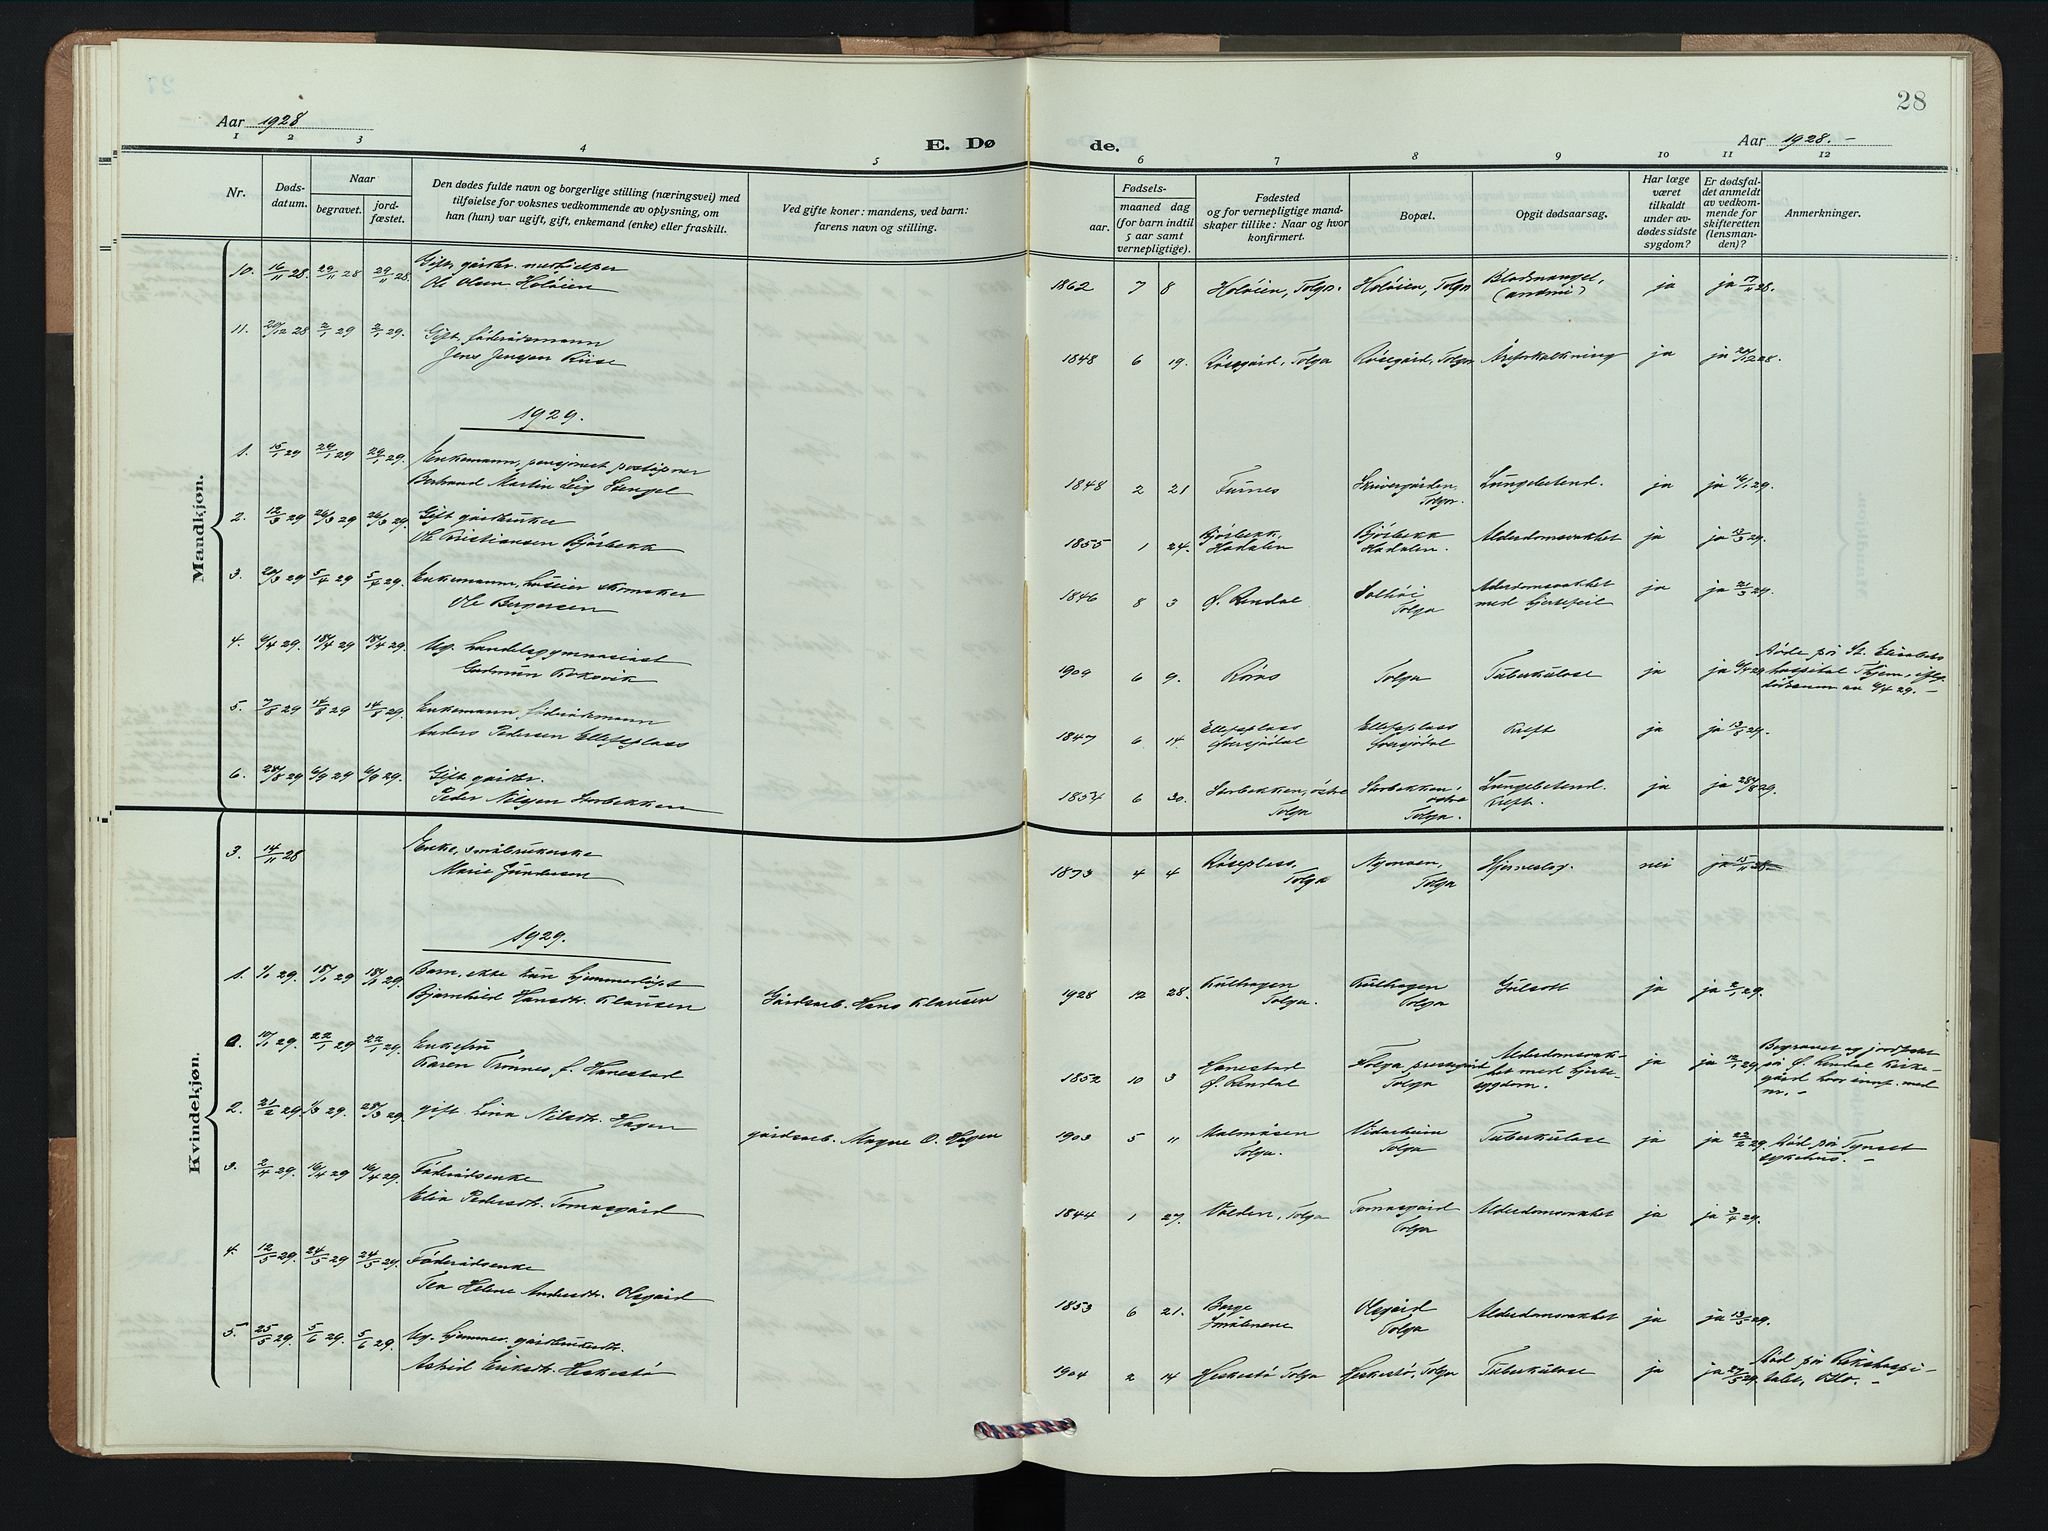 28
Aar 1928
Aar 1928.-
E. Dø
de.
1 2 3 4 5
6 7 8 9 10 11 12
Nr.
Døds-
datum.
Naar
begravet.
jord-
fæstet.
Den dødes fulde navn og borgerlige stilling (næringsvei) med
tilføielse for voksnes vedkommende av oplysning, om
han (hun) var ugift, gift, enkemand (enke) eller fraskilt.
Ved gifte koner: mandens, ved barn:
farens navn og stilling.
Fødsels-
aar.
maaned dag
(for barn indtil
5 aar samt
vernepligtige).
Fødested
og for vernepligtige mand-
skaper tillike: Naar og hvor
konfirmert.
Bopæl.
Opgit dødsaarsag.
Har læge
været
tilkaldt
under av-
dødes sidste
sygdom?
Er dødsfal-
det anmeldt
av vedkom-
mende for
skifteretten
(lensman-
den)?
Anmerkninger.
Mandkjøn.
10. 16/11 28. 29/11 28 29/11 28. Gift, gårdbr.
Ole Olsen Holøien
1862 7 8 Holøien, Tolga. Holøien, Tolga Blodmangel, ja ja 17/11 28.
11. 20/12 28 2/1 29 2/1 29. Gift føderådsmann
Jens Jensen Riise
1848 6 19. Tolga Tolga Åreforkalkning ja ja
1929.
1. 15/1 29 29. Enkemann, pensjonist
Martin Stengel
1848 2 21 Furnes Skrivergården, Lungebetend. ja ja 16/1 29.
Tolga.
2. 12/3 29 26/3 29 26/3 29. Gift gårdbruker
Ole Kristiansen Bjørbekk
1855 1 24. Bjørbekk, Bjørbekk Alderdomssvakhet ja ja 13/3 29.
Hodalen Hodalen.
3. 20/3 29 5/4 29 5/4 29. Enkemann, skomaker
Ole Bergersen
1846 8 3 Ø. Rendal Tolga Alderdomssvakhet ja ja 21/3 29.
med hjertefeil
4. 6/4 29. 18/4 29 18/4 29. Ug. handelsgymnasiast
Koksvik
1909 6 9. Røros Tolga Tuberkulose ja ja Døde på St. Elisabeths
hospital
5. 7/8 29 14/8 29 14/8 29. Enkemann føderådsmann
Anders Pedersen Ellefsplass
1847 6 14. Ellefsplass Ellefsplass Kreft ja ja 13/8 29.
6. 24/8 29 6/9 29 6/9 29. Gift gårdbr.
Peder Nilsen Storbekken
1854 6 30. Storbekken, østre Storbekken, Lungebetend. ja ja 28/8 29.
Tolga østre Kreft.
Tolga.
Kvindekjøn.
3. 14/11 28 Enke, småbrukerske
Marie Gundersen
1873 4 4 Røseplass, Nymoen, Hjerneslag. nei ja 15/11 28
Tolga Tolga
1929.
1. 1/1 29. 18/1 29 18/1 29. Barn, ekte kun hjemmedøpt
Bjarnhild Hansdtr. Klausen Gårdsarb. Hans Klausen
1928 12 28. Kulhagen Kulhagen Gulsott ja ja 2/1 29.
Tolga. Tolga
10/1 29. 22/1 29 22/1 29. Enkefru
Karen Trønnes f. Hanestad
1852 10 3 Hanestad Tolga prestegård Alderdomssvak- ja ja 12/1 29. Begravet og jordfestet
Ø. Rendal Tolga het med hjerte- på Ø. Rendal kirke-
sygdom. gård hvor innf. med
nr. -
2. 21/2 29 1/3 29. 29. gift Lina Nilsdtr. Hagen
gårdsarb. Magne O. Hagen
1903 5 11 Malmåsen Vidarheim Tuberkulose ja ja 22/2 29. Død på Tynset
Tolga. Tolga sykehus. -
3. 2/4 29 16/4 29 16/4 29. Føderådsenke
Elin Pedersdtr. Tomasgård
1844 1 27. Volden, Tolga Tomasgård Alderdomssvakhet ja ja 3/4 29.
Tolga
4. 12/5 29. 24/5 29 24/5 29. Føderådsenke
Tea Helene Andersdtr. Olsgård
1853 6 21. Borge Olsgård Alderdomssvakhet ja ja 13/5 29.
Smålenene Tolga
5. 25/5 29. 5/6 29. 5/6 29. Ug. hjemmev. gårdbrukerdtr.
Astrid Eriksdtr. Heskestø
1904 2 14 Heskestø Tolga Heskestø, Tolga Tuberkulose ja ja 27/5 29. Død på Rikshospi-
talet, Oslo. -